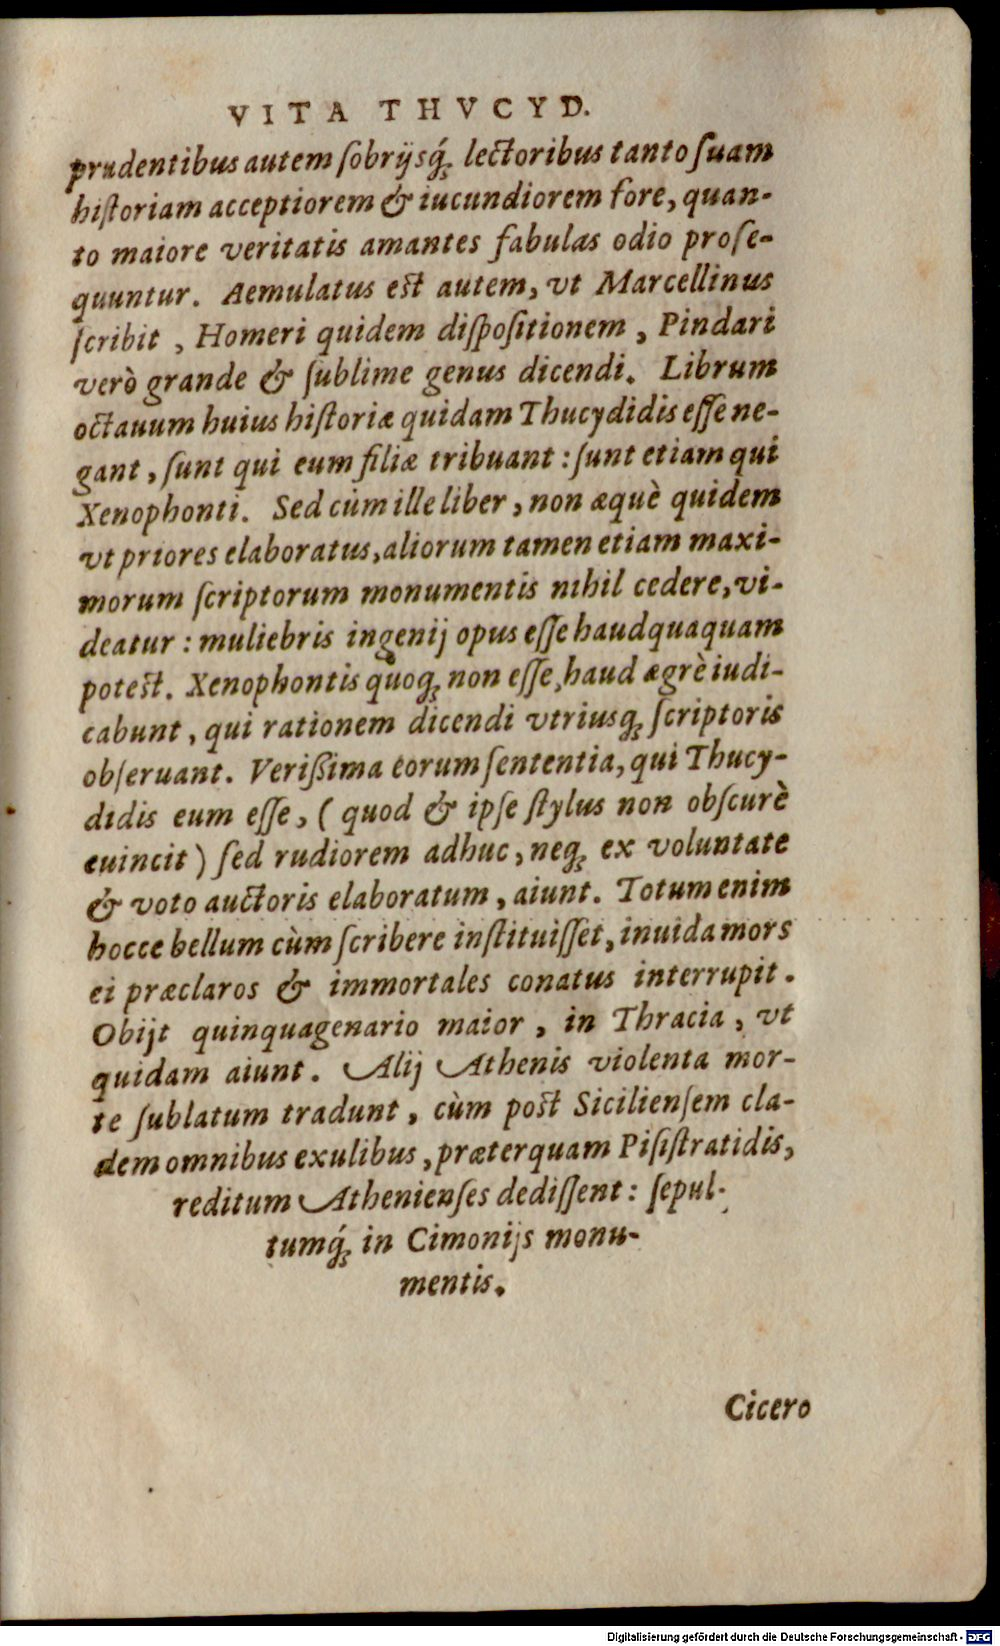 VITA THVCYD.
prudentibus autem ſobrijsq́ꝫ lectoribus tanto ſuam
hiſtoriam acceptiorem & iucundiorem fore, quan-
to maiore veritatis amantes fabulas odio proſe-
quuntur. Aemulatus est autem, vt Marcellinus
ſcribit, Homeri quidem diſpoſitionem, Pindari
verò grande & ſublime genus dicendi. Librum
octauum huius hiſtoriæ quidam Thucydidis eſſe ne-
gant, ſunt qui eum filiæ tribuant: ſunt etiam qui
Xenophonti. Sed cùm ille liber, non æquè quidem
vt priores elaboratus, aliorum tamen etiam maxi-
morum ſcriptorum monumentis nihil cedere, vi-
deatur: muliebris ingenij opus eſſe haudquaquam
potest. Xenophontis quoqꝫ non eſſe, haud ægrè iudi-
cabunt, qui rationem dicendi vtriusqꝫ ſcriptoris
obſeruant. Verißima eorum ſententia, qui Thucy-
didis eum eſſe, (quod & ipſe ſtylus non obſcurè
euincit) ſed rudiorem adhuc, neqꝫ ex voluntate
& voto auctoris elaboratum, aiunt. Totum enim
hocce bellum cùm ſcribere inſtituiſſet, inuida mors
ei præclaros & immortales conatus interrupit.
Obijt quinquagenario maior, in Thracia, vt
quidam aiunt. Alij Athenis violenta mor-
te ſublatum tradunt, cùm post Sicilienſem cla-
dem omnibus exulibus, præterquam Piſiſtratidis,
reditum Athenienſes dediſſent: ſepul-
tumq́ꝫ in Cimonijs monu-
mentis.
Cicero
Digitalisierung gefördert durch die Deutsche Forschungsgemeinschaft - DFG